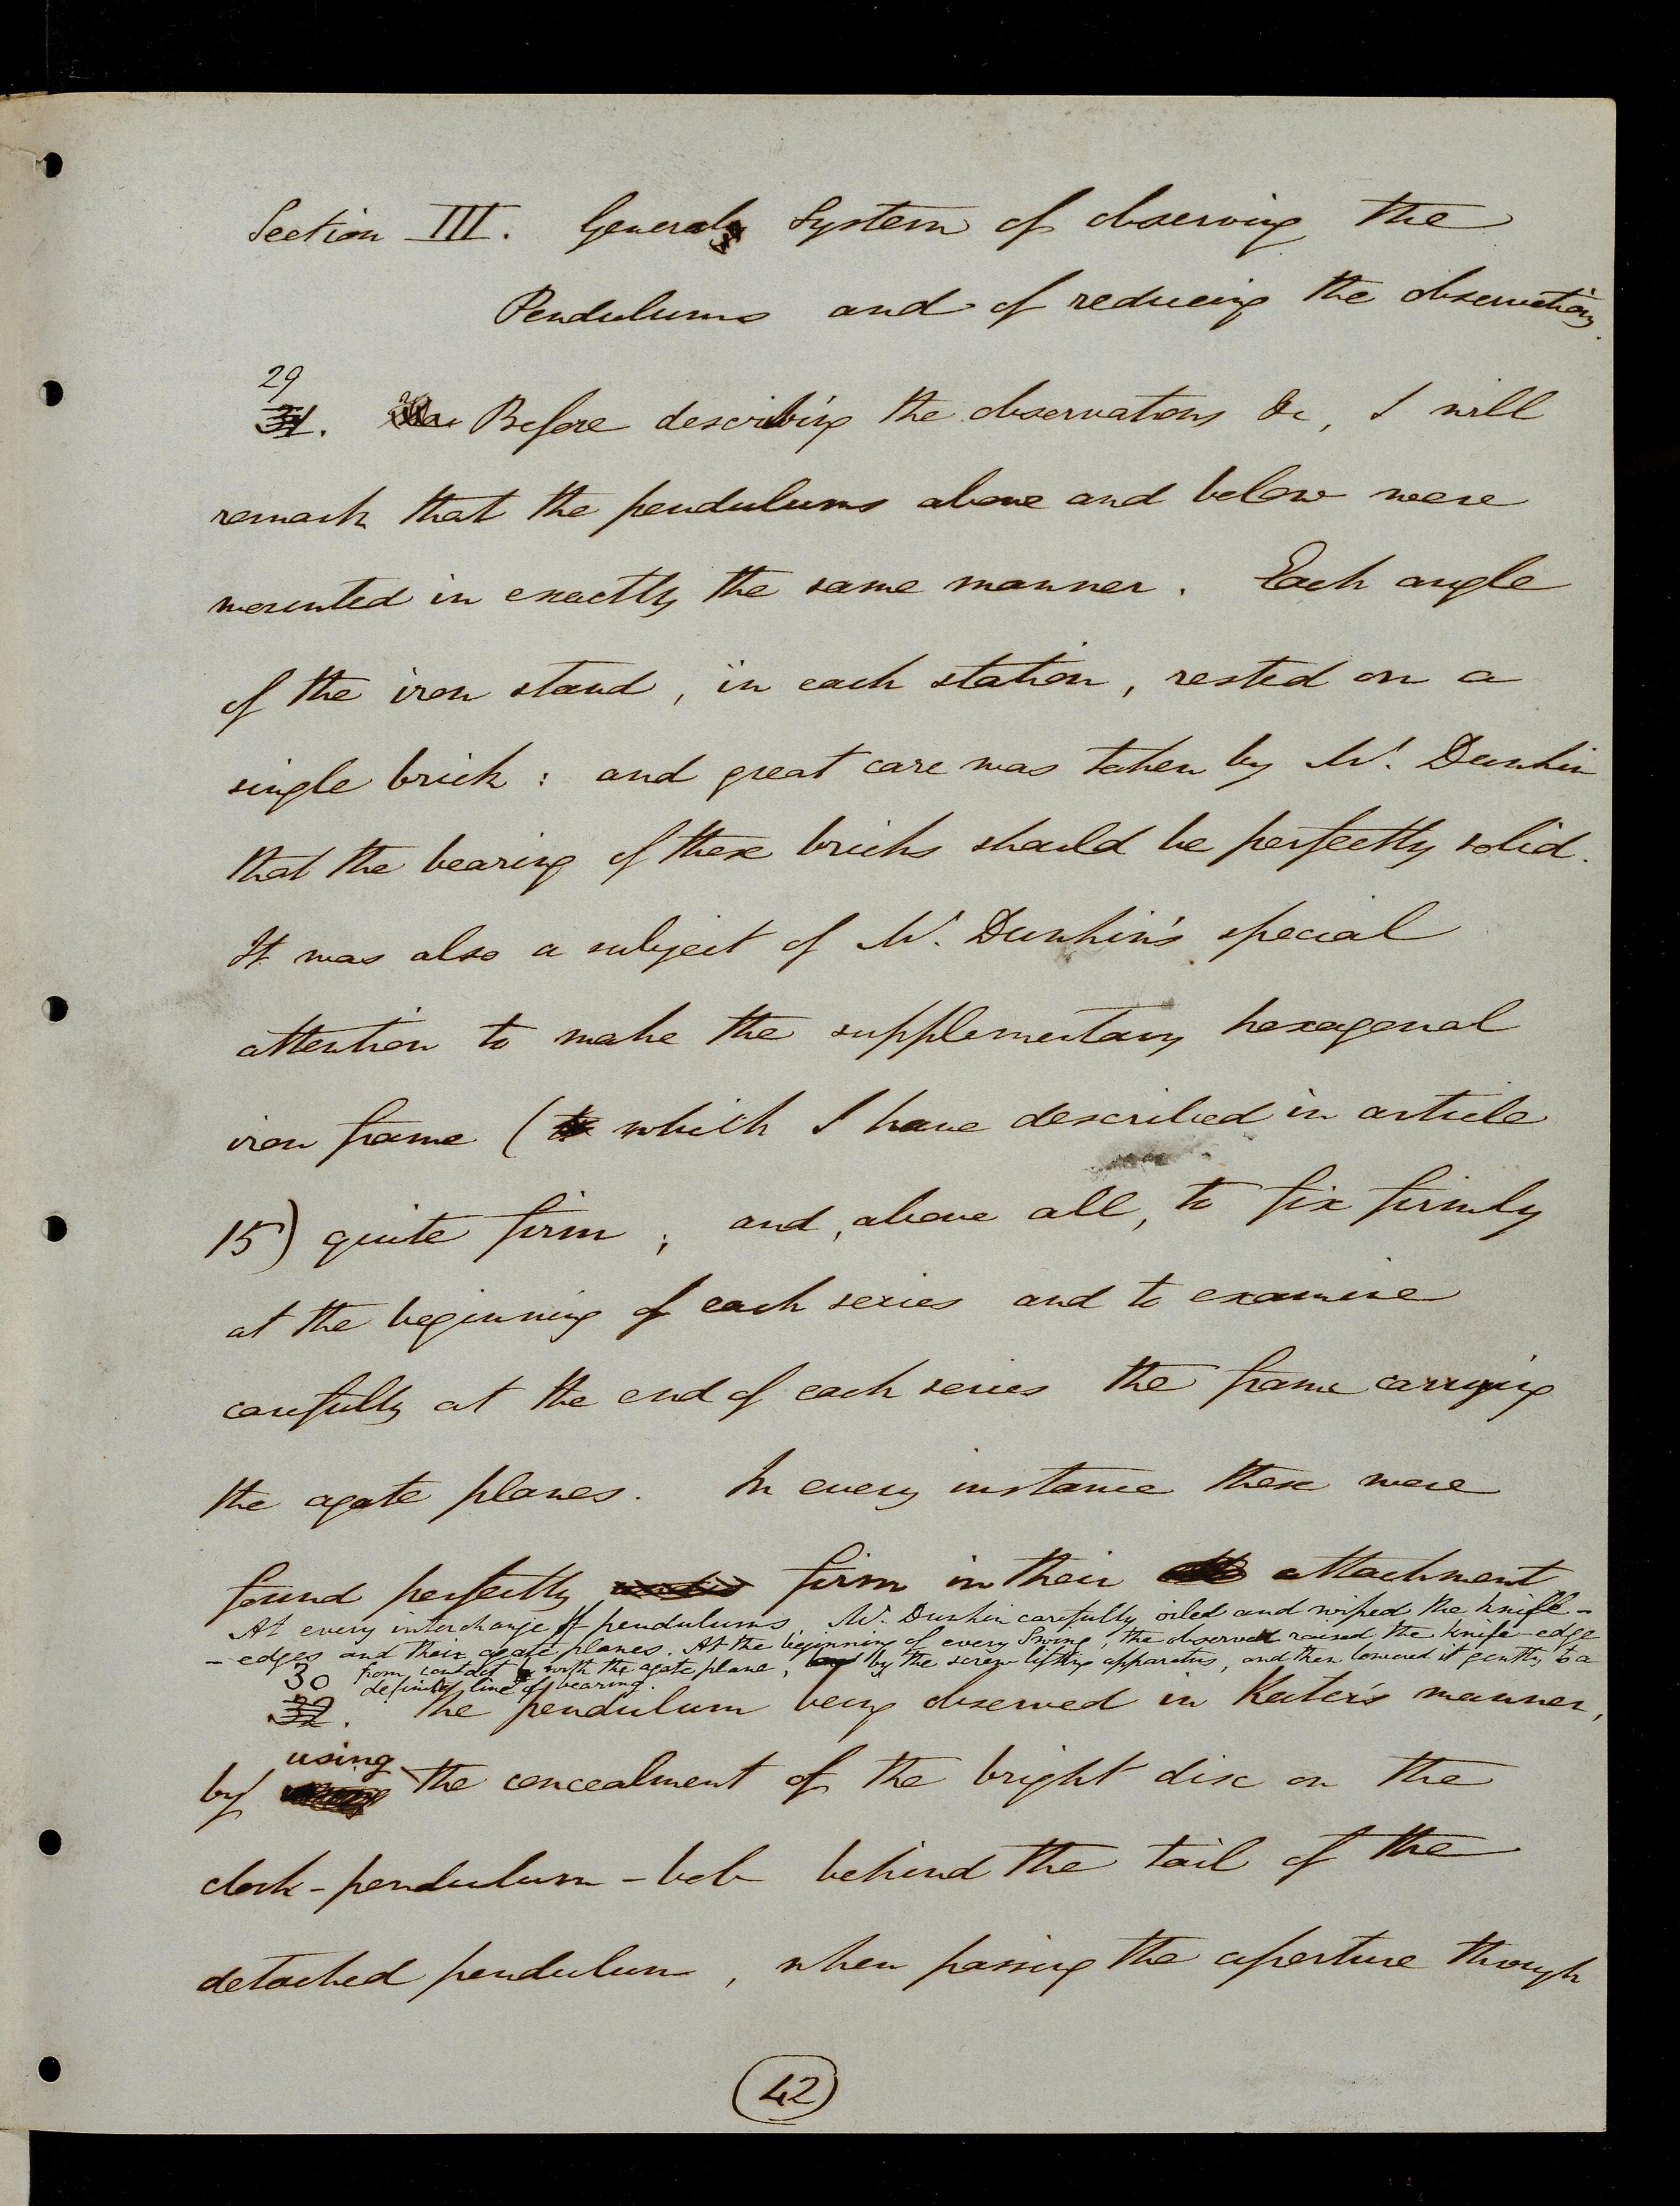 Section III. General System of observing the
Pendulums and of reducing the observations.
29
31. Before describing the observations &c, I will
remark that the pendulums above and below were
mounted in exactly the same manner. Each angle
of the iron stand, in each station, rested on a
single brick: and great care was taken by Mr. Dunkin
that the bearing of these bricks should be perfectly solid.
It was also a subject of Mr. Dunkin's special
attention to make the supplementary hexagonal
iron frame (which I have described in article
15) quite firm; and, above all, to fix firmly
at the beginning of each series and to examine
carefully at the end of each series the frame carrying
the agate planes. In every instance these were
found perfectly firm in their attachment
At every interchange of pendulums, Mr. Dunkin carefully oiled and wiped the knife-
-edges and their agate planes. At the beginning of every Swing, the observer raised the knife-edge
from contact with the agate plane, by the screw lifting apparatus, and then lowered it gently to a
definite line of bearing.
30
32. The pendulum being observed in Kater's manner,
using
by the concealment of the bright disc on the
clock-pendulum-bob behind the tail of the
detached pendulum, when passing the aperture through
42